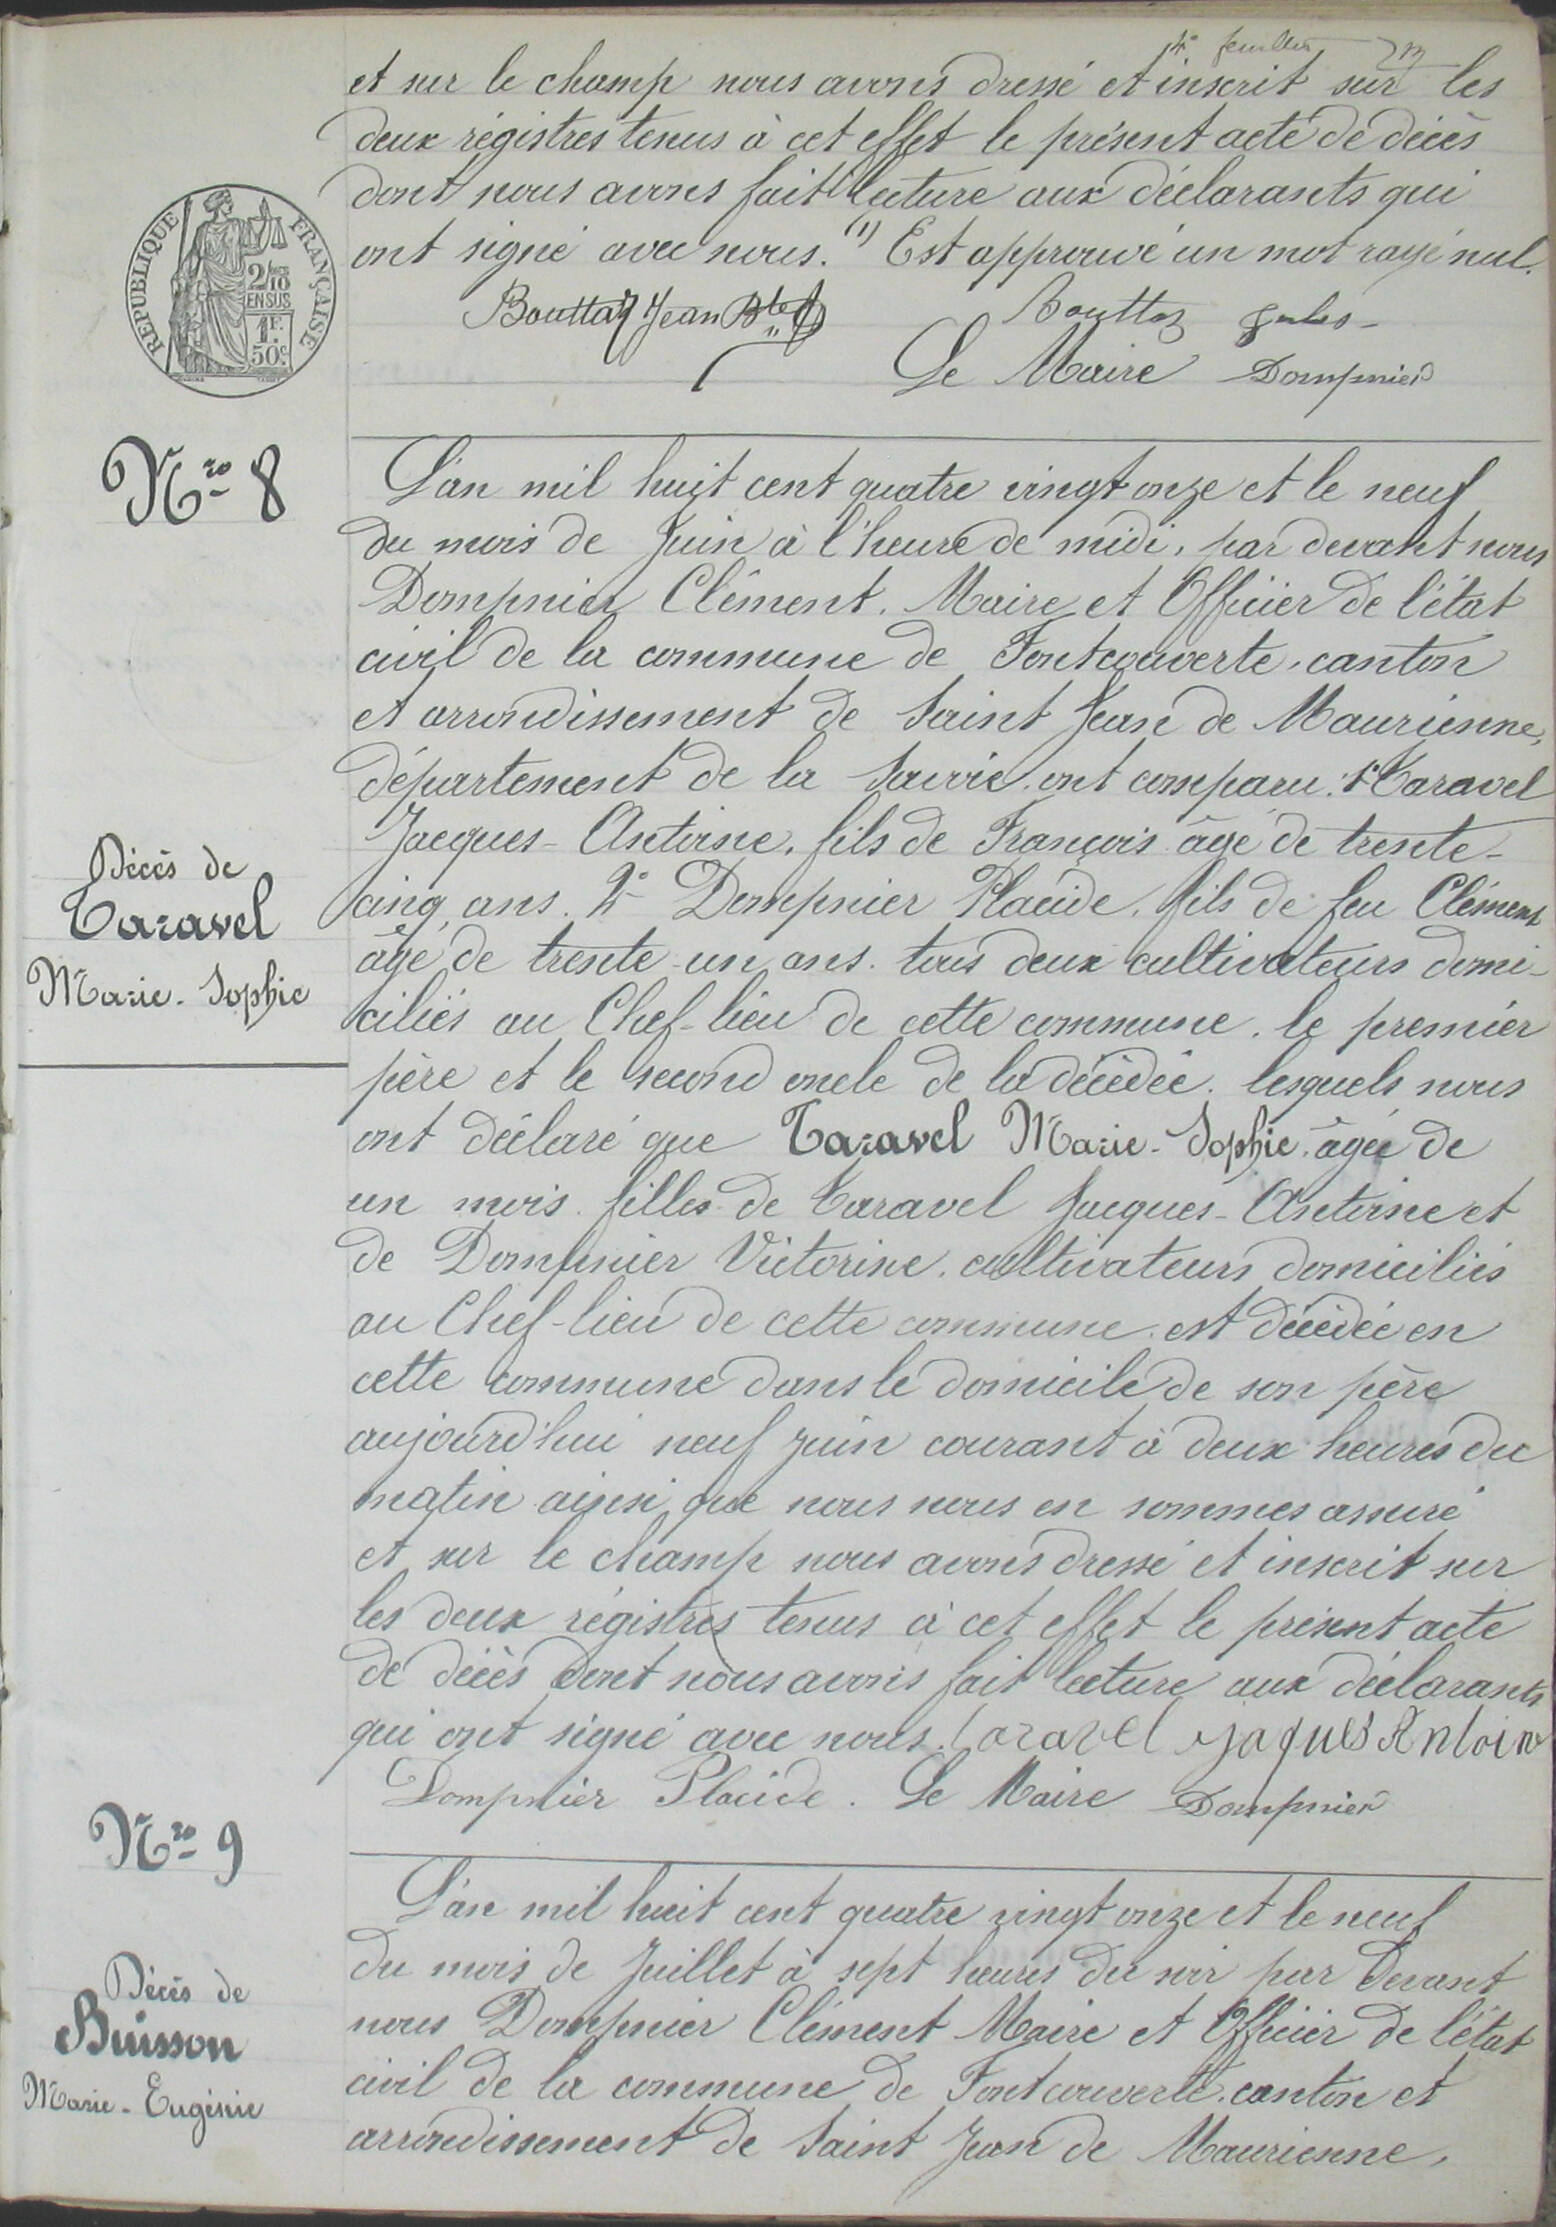 4e feuillet
et sur le champ nous avons dressé et inscrit sur les
deux régistres tenus à cet effet le présent acte de décès
dont nous avons fait lecture aux déclarants qui
ont signé avec nous. (1) Est approuvé un mot rayé nul.
REPUBLIQUE FRANÇAISE
2/10
EN SUS
1F.
50c.
Bouttaz Jean Bte Bouttaz Jules
Le Maire Dompnier
Nro 8
L'an mil huit cent quatre vingt onze et le neuf
du mois de Juin à l'heure de midi, par devant nous
Dompnier Clément. Maire et Officier de l'état
civil de la commune de Fontcouverte, canton
et arrondissement de Saint Jean de Maurienne,
département de la Savoie, ont comparu: 1° Taravel
Jacques-Antoine, fils de François âgé de trente-
cinq ans. 2° Dompnier Placide, fils de feu Clément
âgé de trente-un ans. tous deux cultivateurs domi-
ciliés au Chef-lieu de cette commune. le premier
père et le second oncle de la décédée. lesquels nous
ont déclaré que Taravel Marie-Sophie, âgée de
un mois. filles de Taravel Jacques-Antoine et
de Dompnier Victorine. cultivateurs domiciliés
au Chef-lieu de cette commune. est décédée en
cette commune dans le domicile de son père
aujourd'hui neuf juin courant à deux heures du
matin ainsi que nous nous en sommes assuré
et sur le champ nous avons dressé et inscrit sur
les deux régistres tenus à cet effet le présent acte
de décès dont nous avons fait lecture aux déclarants
qui ont signé avec nous. Taravel jaques Antoine
Dompnier Placide. Le Maire Dompnier
Décès de
Taravel
Marie-Sophie
Nro 9
L'an mil huit cent quatre vingt onze et le neuf
du mois de Juillet à sept heures du soir par devant
nous Dompnier Clément Maire et Officier de l'état
civil de la commune de Fontcouverte. canton et
arrondissement de Saint Jean de Maurienne,
Décès de
Buisson
Marie-Eugénie